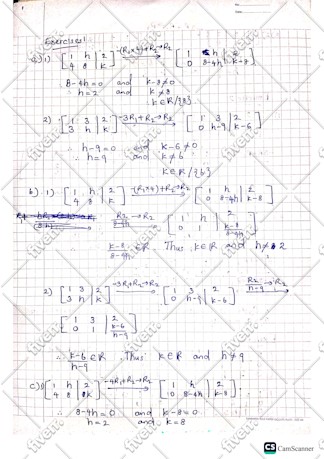 Exercises
a) 1) [1 h | 2; 4 8 | k] -(R₁×4)+R₂→R₂ [1 h | 2; 0 8-4h | k-8]
8-4h=0 and k-8≠0
∴ h=2 and k≠8
k∈R/{8}
2) [1 3 | 2; 3 h | k] -3R₁+R₂→R₂ [1 3 | 2; 0 h-9 | k-6]
∴ h-9=0 and k-6≠0
∴ h=9 and k≠6
k∈R/{6}
b) 1) [1 h | 2; 4 8 | k] -(R₁×4)+R₂→R₂ [1 h | 2; 0 8-4h | k-8]
R₂/8-4h →R₂ [1 h | 2; 0 1 | k-8/8-4h]
∴ k-8/8-4h ∈R. Thus k∈R and h≠2
2) [1 3 | 2; 3 h | k] -3R₁+R₂→R₂ [1 3 | 2; 0 h-9 | k-6] R₂/h-9 →R₂
[1 3 | 2; 0 1 | k-6/h-9]
∴ k-6/h-9 ∈R Thus k∈R and h≠9
c) 1) [1 h | 2; 4 8 | k] -4R₁+R₂→R₂ [1 h | 2; 0 8-4h | k-8]
∴ 8-4h=0 and k-8=0
h=2 and k=8
CS CamScanner
fiverr